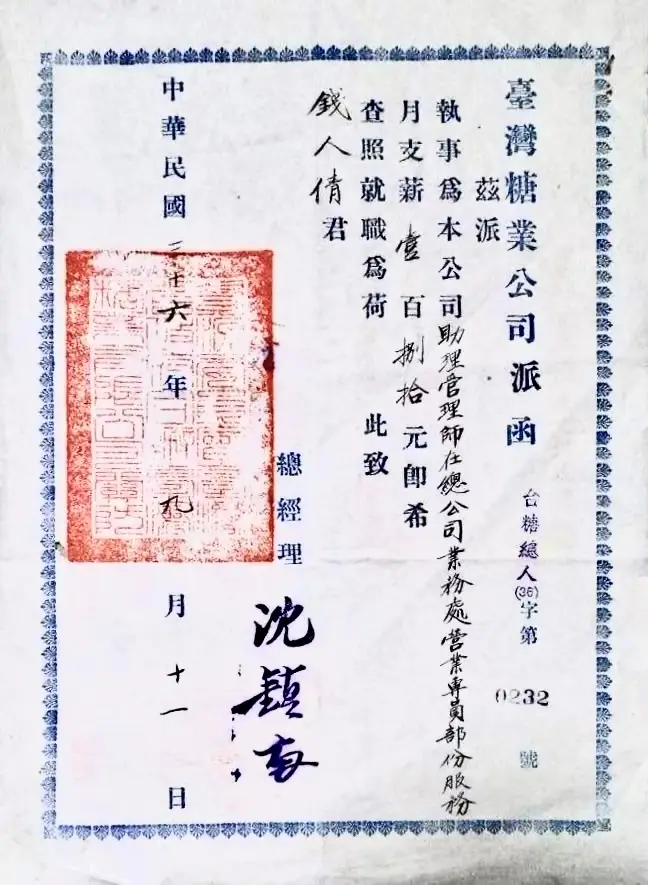 臺灣糖業公司派函
台糖總人(36)字第0232號
茲派
執事爲本公司助理管理師在總公司業務處營業專員部份服務
月支薪壹百捌拾元卽希
查照就職爲荷 此致
錢人倩君
總經理 沈鎮南
中華民國三十六年九月十一日